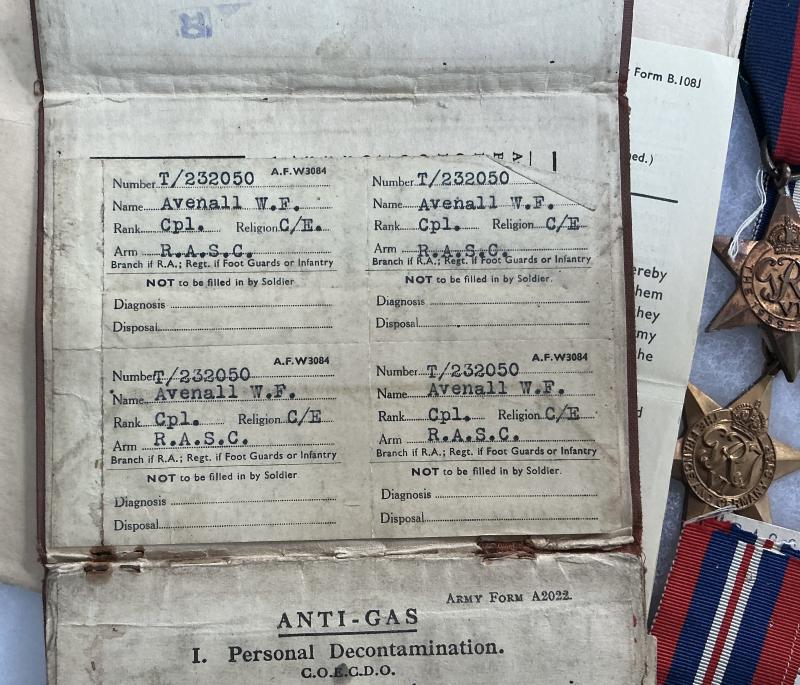 Form B.108J
ned.)
ereby
hem
they
my
he
d
A.F.W3084
Number T/232050
Name Avenall W.F.
Rank Cpl. Religion C/E.
Arm R.A.S.C.
Branch if R.A.; Regt. if Foot Guards or Infantry
NOT to be filled in by Soldier
Diagnosis
Disposal
Number T/232050
Name Avenall W.F.
Rank Cpl. Religion C/E
Arm R.A.S.C.
Branch if R.A.; Regt. if Foot Guards or Infantry
NOT to be filled in by Soldier.
Diagnosis
Disposal
A.F.W3084
Number T/232050
Name Avenall W.F.
Rank Cpl. Religion C/E
Arm R.A.S.C.
Branch if R.A.; Regt. if Foot Guards or Infantry
NOT to be filled in by Soldier
Diagnosis
Disposal
A.F.W3084
Number T/232050
Name Avenall W.F.
Rank Cpl. Religion C/E
Arm R.A.S.C.
Branch if R.A.; Regt. if Foot Guards or Infantry
NOT to be filled in by Soldier.
Diagnosis
Disposal
ARMY FORM A2022.
ANTI-GAS
I. Personal Decontamination.
C.O.E.C.D.O.